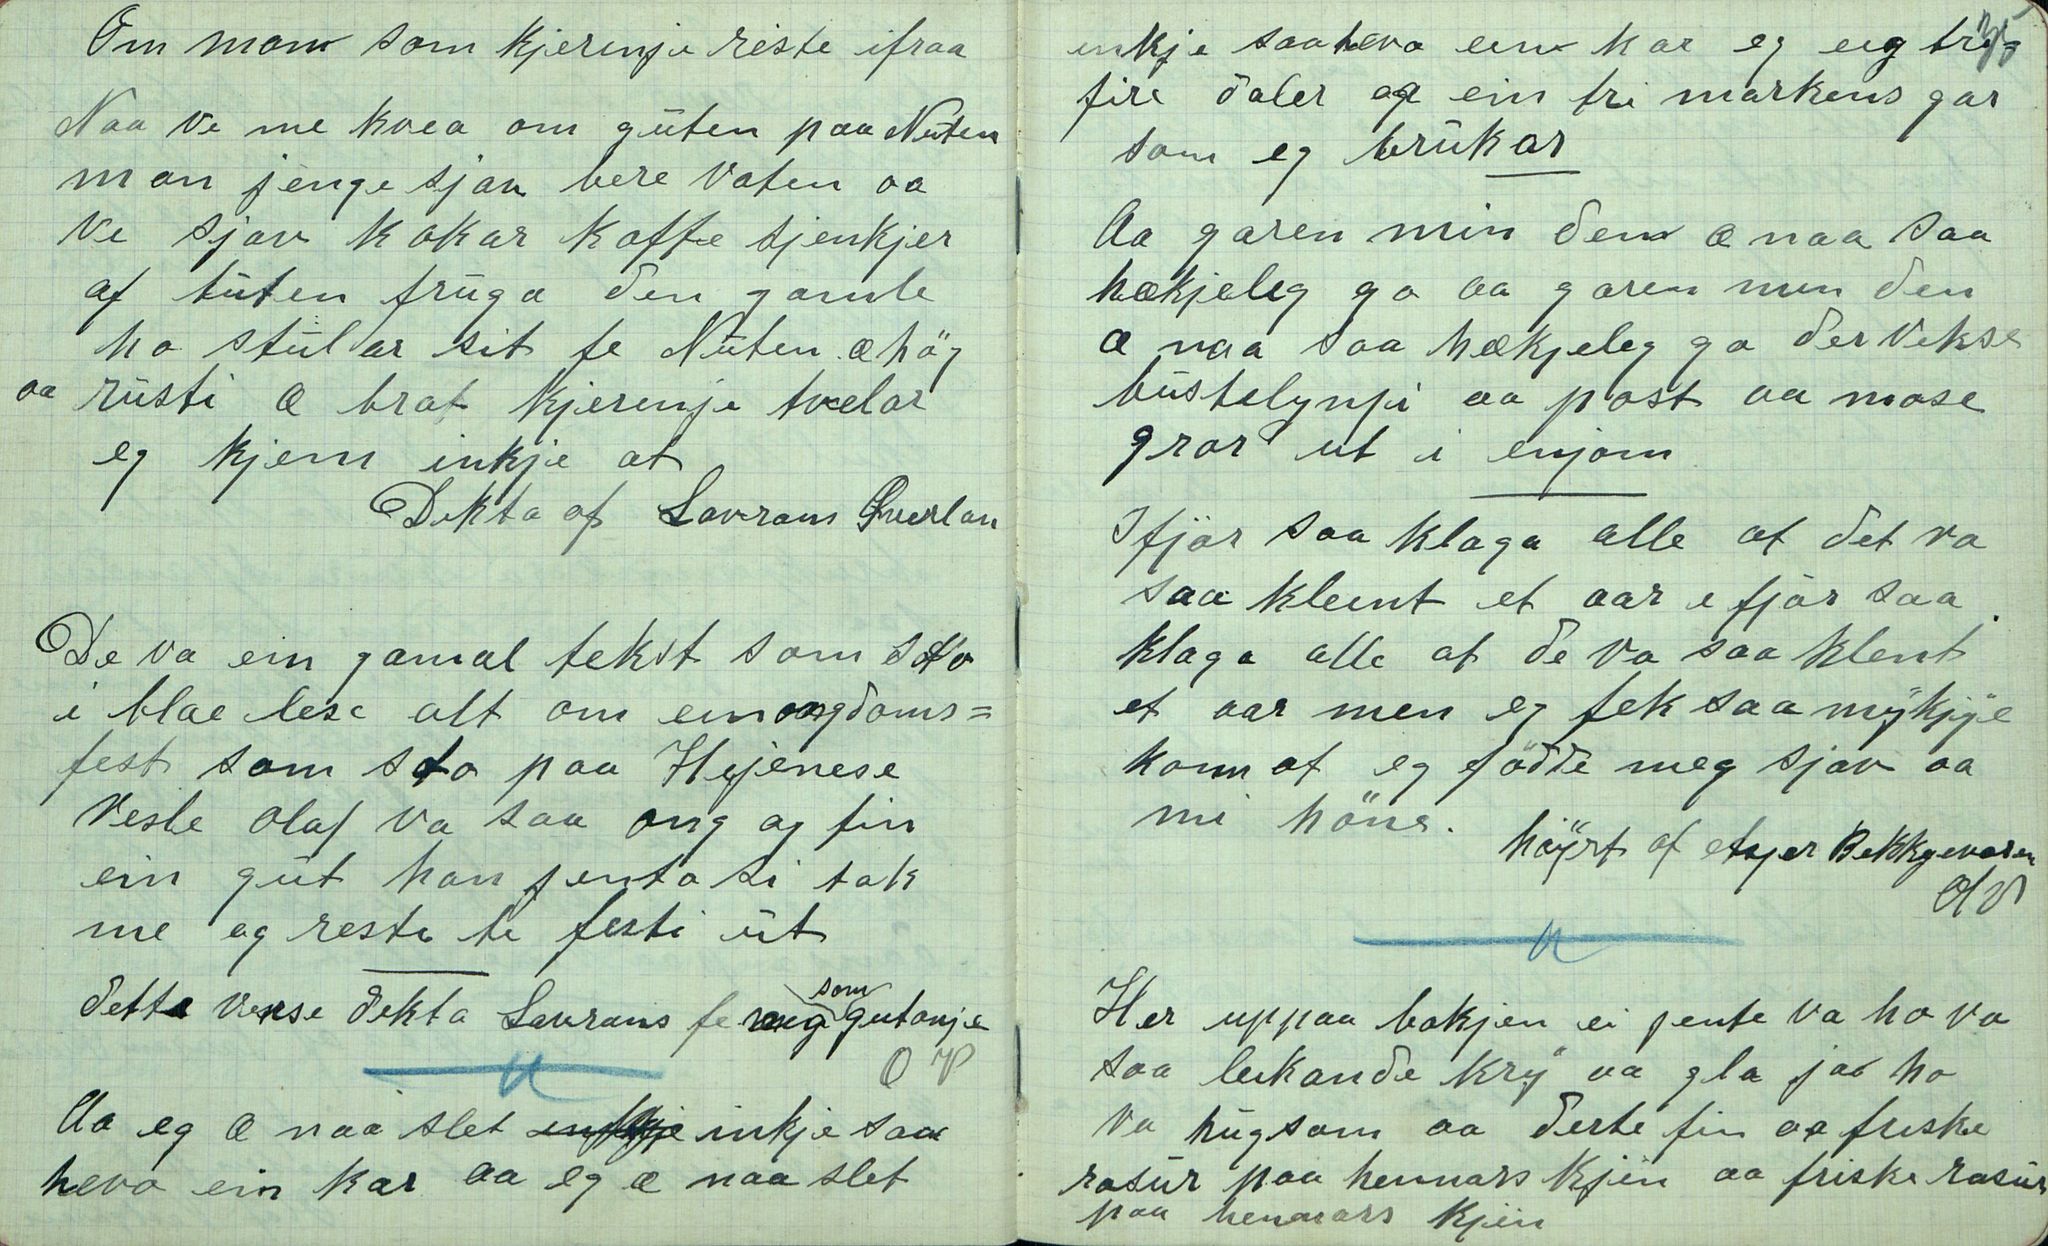 Om man som kjeringje reiste ifraa
Naa ve me kvea om guten paa Nuten
man jenge sjav bere vaten aa
ve sjav kokar koffe sjenkjer
af tuten fruga den gamle
ho stular sit te Nuten æ hög
aa rusti æ brat kjeringje tvelar
eg kjem inkje at
Dikta af Lavrans
De va ein gamal tekst som sto
i blae lese alt om ein ongdoms=
fest som sto paa
Vesle Olaf va saa ong og fin
ein gut han jenta si tok
me og reste te festi ut
dette verse dikta Lavrans som gutonje
O V
Aa eg æ naa slet inkje saa
heva ein kar aa eg æ naa slet
35
inkje saa heva ein kar eg eig
fire daler og ein fri markens gar
som eg brukar
Aa garen min den æ naa saa
hækjeleg go aa garen min den
æ naa saa hækjeleg go der vekse
bustelynji aa post aa mose
gror ut i enjom
Ifjör saa klaga alle at det va
saa kleint et aar i fjör saa
klaga alle at de va saa klent
et aar men eg fek saa mykjye
konn at eg födde meg sjav aa
mi höns.
höyrt af
O V
Her uppaa bakjen ei jente va ho va
saa leikande kry aa gla jao ho
va hugsom aa fin aa friske
rosur paa hennars kjin aa friske rosur
paa hennars kjin